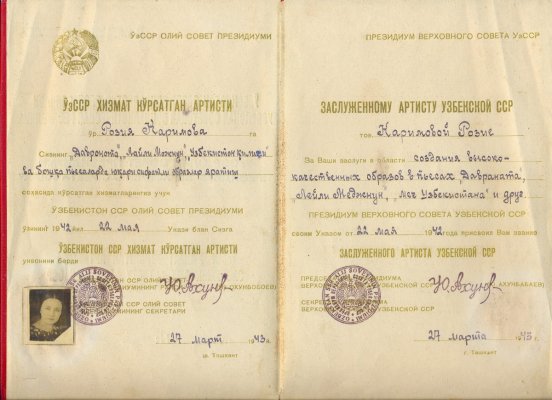 ЎзССР ОЛИЙ СОВЕТ ПРЕЗИДИУМИ
ЎзССР ХИЗМАТ КЎРСАТГАН АРТИСТИ
ўр. Розия Каримова га
Сизнинг „Давронота", „Лайли Можнун", „Узбекистон қиличи"
ва бошқа пьесаларда юқори сифатли образлар яратиш
соҳасида кўрсатган хизматларингиз учун
ЎЗБЕКИСТОН ССР ОЛИЙ СОВЕТ ПРЕЗИДИУМИ
ўзининг 1942 йил 22 мая Укази блан Сизга
ЎЗБЕКИСТОН ССР ХИЗМАТ КЎРСАТГАН АРТИСТИ
унвонини берди
ССР ОЛИЙ
Ю. Ахунб (АХУНБОБОЕВ)
ССР ОЛИЙ СОВЕТ
СЕКРЕТАРИ
27 март 1943 й.
ш. Ташкент
ПРЕЗИДИУМ ВЕРХОВНОГО СОВЕТА УзССР
ЗАСЛУЖЕННОМУ АРТИСТУ УЗБЕКСКОЙ ССР
тов. Каримовой Розие
За Ваши заслуги в области создания высоко-
качественных образов в пьесах „Давраната",
„Лейли Меджнун", „меч Узбекистана" и друг.
ПРЕЗИДИУМ ВЕРХОВНОГО СОВЕТА УЗБЕКСКОЙ ССР
своим Указом от 22 мая 1942 года присвоил Вам звание
ЗАСЛУЖЕННОГО АРТИСТА УЗБЕКСКОЙ ССР
ПРЕДС ПРЕЗИДИУМА
ВЕРХОВ УЗБЕКСКОЙ ССР
Ю. Ахунб (АХУНБАБАЕВ)
СЕКРЕ ПРЕЗИДИУМА
ВЕРХОВНО УЗБЕКСКОЙ ССР
27 марта 1943 г.
г. Ташкент